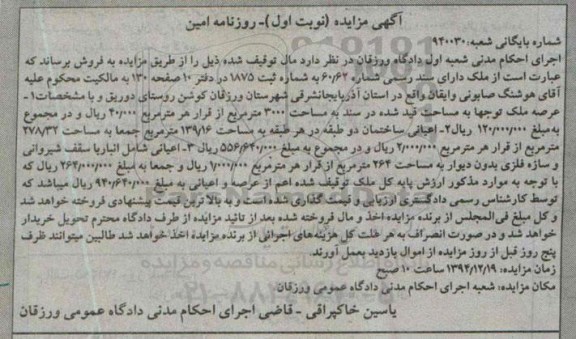 آگهی مزایده (نوبت اول)- روزنامه امین
شماره بایگانی شعبه: ۹۴۰۰۳۰
اجرای احکام مدنی شعبه اول دادگاه ورزقان در نظر دارد مال توقیف شده ذیل را از طریق مزایده به فروش برساند که
عبارت است از ملک دارای سند رسمی شماره ۶۰/۶۲ به شماره ثبت ۱۸۷۵ در دفتر ۱۰ صفحه ۱۳۰ به مالکیت محکوم علیه
آقای هوشنگ صابونی وایقان واقع در استان آذربایجانشرقی شهرستان ورزقان کوشن روستای دوریق و با مشخصات ۱-
عرصه ملک توجها به مساحت قید شده در سند به مساحت ۳۰۰۰ مترمربع از قرار هر مترمربع ۴۰/۰۰۰ ریال و در مجموع
به مبلغ ۱۲۰/۰۰۰/۰۰۰ ریال ۲- اعیانی ساختمان دو طبقه در هر طبقه به مساحت ۱۳۹/۱۶ مترمربع جمعا به مساحت ۲۷۸/۳۲
مترمربع از قرار هر مترمربع ۲/۰۰۰/۰۰۰ ریال و در مجموع به مبلغ ۵۵۶/۶۴۰/۰۰۰ ریال ۳- اعیانی شامل انباربا سقف شیروانی
و سازه فلزی بدون دیوار به مساحت ۲۶۴ مترمربع از قرار هر مترمربع ۱/۰۰۰/۰۰۰ ریال و جمعا به مبلغ ۲۶۴/۰۰۰/۰۰۰ ریال که
با توجه به موارد مذکور ارزش پایه کل ملک توقیف شده اعم از عرصه و اعیانی به مبلغ ۹۴۰/۶۴۰/۰۰۰ ریال میباشد که
توسط کارشناس رسمی دادگستری ارزیابی و قیمت گذاری شده است و به بالاترین قیمت پیشنهادی فروخته خواهد شد
و کل مبلغ فی المجلس از برنده مزایده اخذ و مال فروخته شده بعد از تائید مزایده از طرف دادگاه محترم تحویل خریدار
خواهد شد و در صورت انصراف به هر علت کل هزینه های اجرائی از برنده مزایده اخذ خواهد شد طالبین میتوانند ظرف
پنج روز قبل از روز مزایده از اموال بازدید بعمل آورند.
زمان مزایده: ۱۳۹۴/۱۲/۱۹ ساعت ۱۰ صبح
مکان مزایده: شعبه اجرای احکام مدنی دادگاه عمومی ورزقان
یاسین خاکپراقی - قاضی اجرای احکام مدنی دادگاه عمومی ورزقان